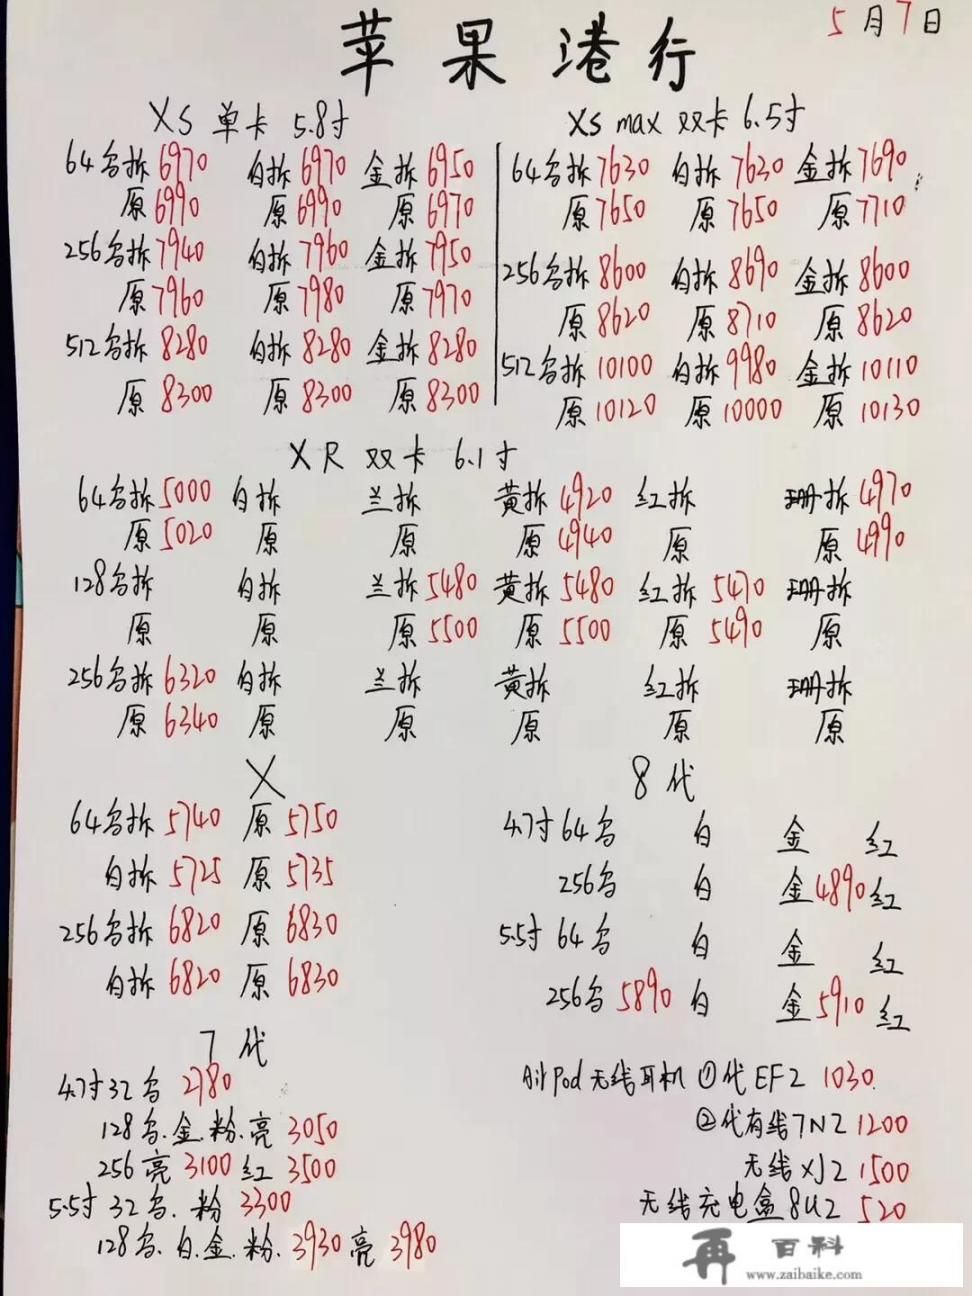 5月7日
苹果港行
XS 单卡 5.8寸
64乌拆 6970 白拆 6970 金拆 6950
原 6990 原 6990 原 6970
256乌拆 7940 白拆 7960 金拆 7950
原 7960 原 7980 原 7970
512乌拆 8280 白拆 8280 金拆 8280
原 8300 原 8300 原 8300
XS max 双卡 6.5寸
64乌拆 7630 白拆 7630 金拆 7690
原 7650 原 7650 原 7710
256乌拆 8600 白拆 8690 金拆 8600
原 8620 原 8710 原 8620
512乌拆 10100 白拆 9980 金拆 10110
原 10120 原 10000 原 10130
XR 双卡 6.1寸
64乌拆 5000 白拆 兰拆 黄拆 4920 红拆 珊拆 4970
原 5020 原 原 原 4940 原 原 4990
128乌拆 白拆 兰拆 5480 黄拆 5480 红拆 5470 珊拆
原 原 原 5500 原 5500 原 5490 原
256乌拆 6320 白拆 兰拆 黄拆 红拆 珊拆
原 6340 原 原 原 原 原
X
64乌拆 5740 原 5750
白拆 5725 原 5735
256乌拆 6820 原 6830
白拆 6820 原 6830
8代
4.7寸 64乌 白 金 红
256乌 白 金 4890 红
5.5寸 64乌 白 金 红
256乌 5890 白 金 5910 红
7代
4.7寸 32乌 2780
128乌.金.粉.亮 3050
256亮 3100 红 3500
5.5寸 32乌.粉 3300
128乌.白.金.粉. 3930 亮 3980
AirPod 无线耳机 ①代 EF2 1030
②代有线 7N2 1200
无线 XJ2 1500
无线充电盒 8U2 520
再 百科
www.zaibaike.com